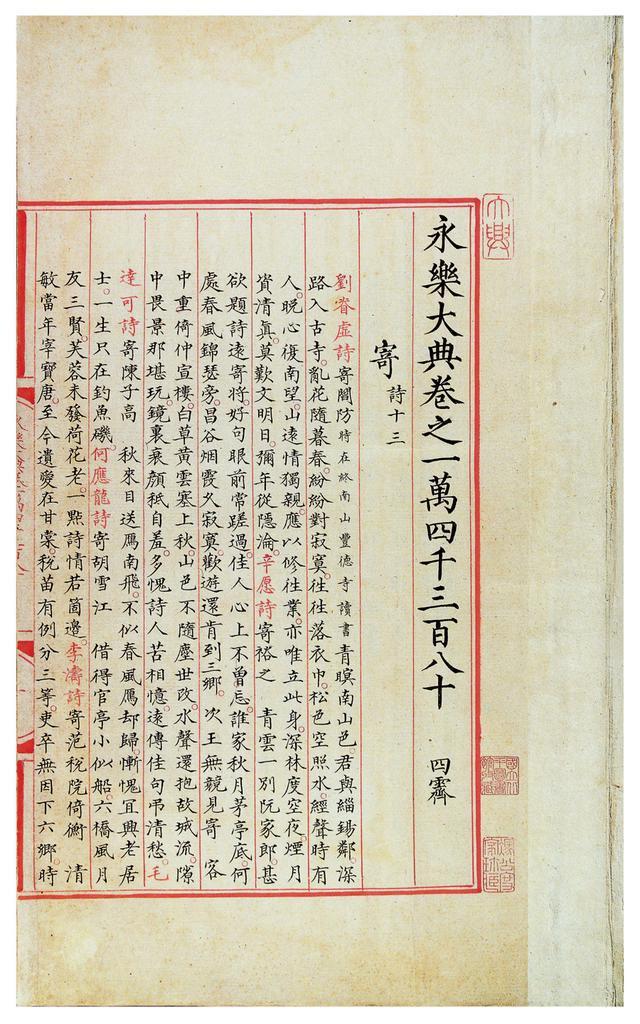 永樂大典卷之一萬四千三百八十 四霽
寄 詩十三
劉眘虛詩寄閻防時在終南山豐德寺讀書青暝南山色君與緇錫鄰深
路入古寺亂花隨暮春紛紛對寂寞徃徃落衣巾松色空照水經聲時有
人晚心復南望山遠情獨親應以修徃業亦唯立此身深林度空夜煙月
資清真莫歎文明日彌年從隱淪辛愿詩寄裕之 青雲一別阮家郎甚
欲題詩遠寄將好句眼前常蹉過佳人心上不曾忘誰家秋月茅亭底何
處春風錦瑟旁昌谷烟霞久寂寞歡遊還肯到三鄉次王無競見寄 客
中重倚仲宣樓白草黃雲塞上秋山色不隨塵世改水聲還抱故城流隙
中畏景那堪玩鏡裏衰顏秪自羞多愧詩人苦相憶遠傳佳句弔清愁毛
達可詩寄陳子高 秋來目送鴈南飛不似春風鴈却歸慚愧宜興老居
士一生只在釣魚磯何應龍詩寄胡雪江 借得官亭小似船六橋風月
友三賢芙蓉未發荷花老一點詩情若箇邉李濤詩寄范稅院倚衡 清
敏當年宰寶唐至今遺愛在甘棠稅苗有例分三等吏卒無因下六鄉時